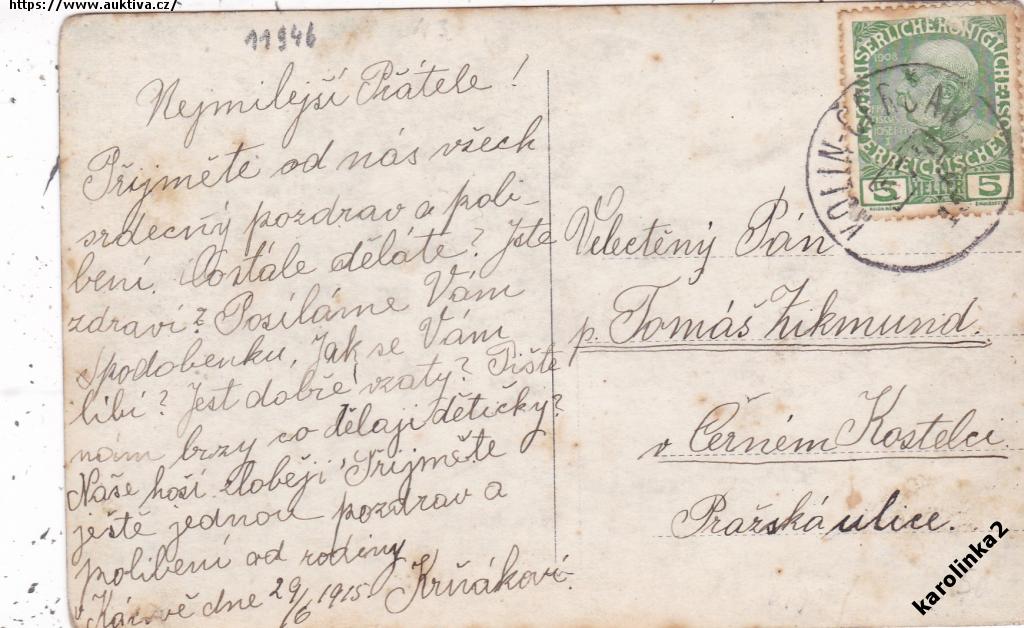 https://www.auktiva.cz/
11946
Nejmilejší Přátele!
Přijměte od nás všech
srdečný pozdrav a poli-
bení. Co stále děláte? Jste
zdraví? Posíláme Vám
spodobenku. Jak se Vám
líbí? Jest dobře vzatý? Pište
nám brzy co dělají dětičky?
Naše hoší zlobějí Přijměte
ještě jednou pozdrav a
polibení od rodiny
Krňákovi.
dne 29/6 1915
Velectěný Pán
p. Tomáš Zikmund.
v Černém Kostelci
Pražská ulice.
KAISERLICHE KÖNIGLICHE ÖSTERREICHISCHE
1908
5 HELLER 5
WOLIN
karolinka2